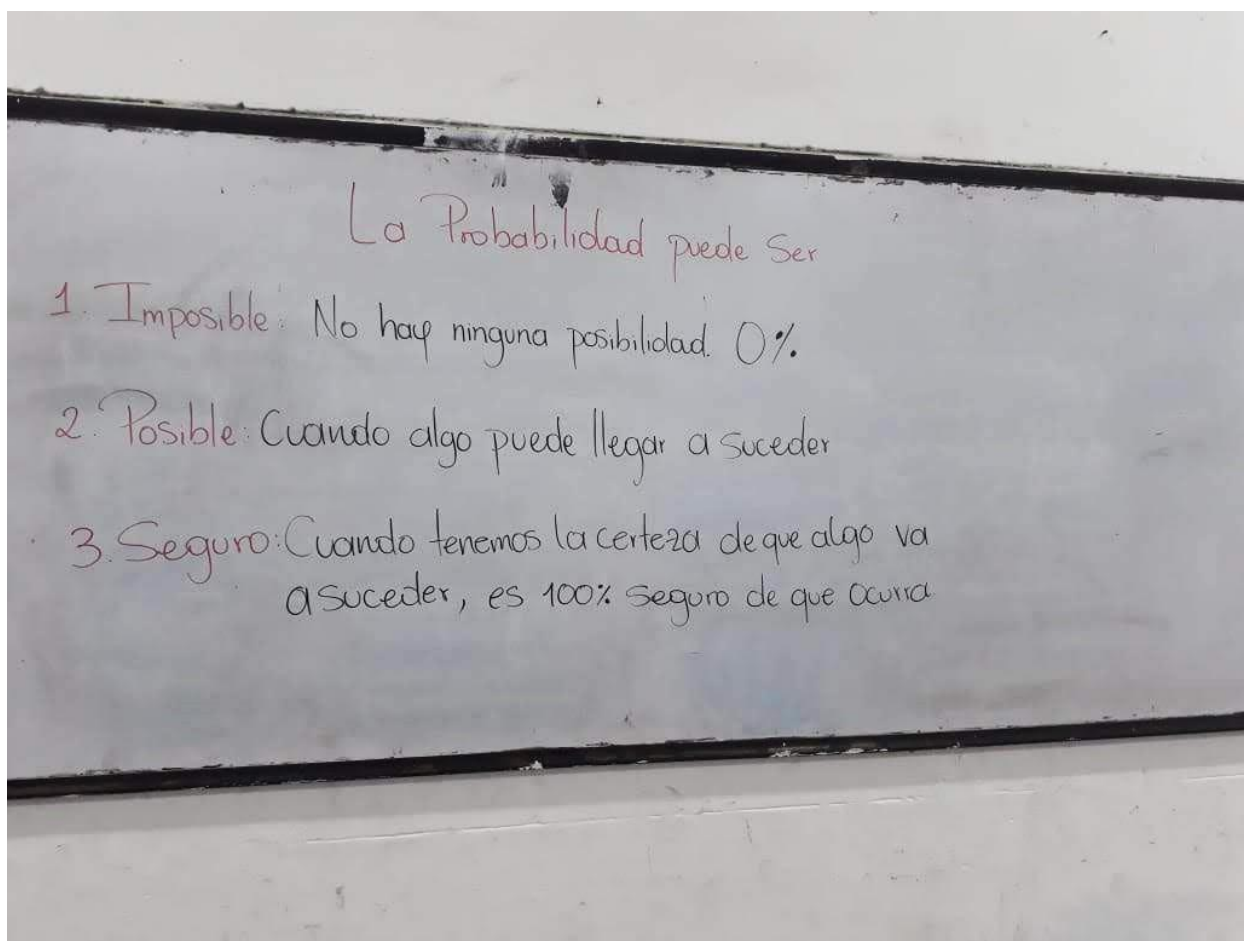 La Probabilidad puede Ser
1. Imposible: No hay ninguna posibilidad. 0%.
2. Posible: Cuando algo puede llegar a suceder
3. Seguro: Cuando tenemos la certeza de que algo va
a suceder, es 100% seguro de que ocurra